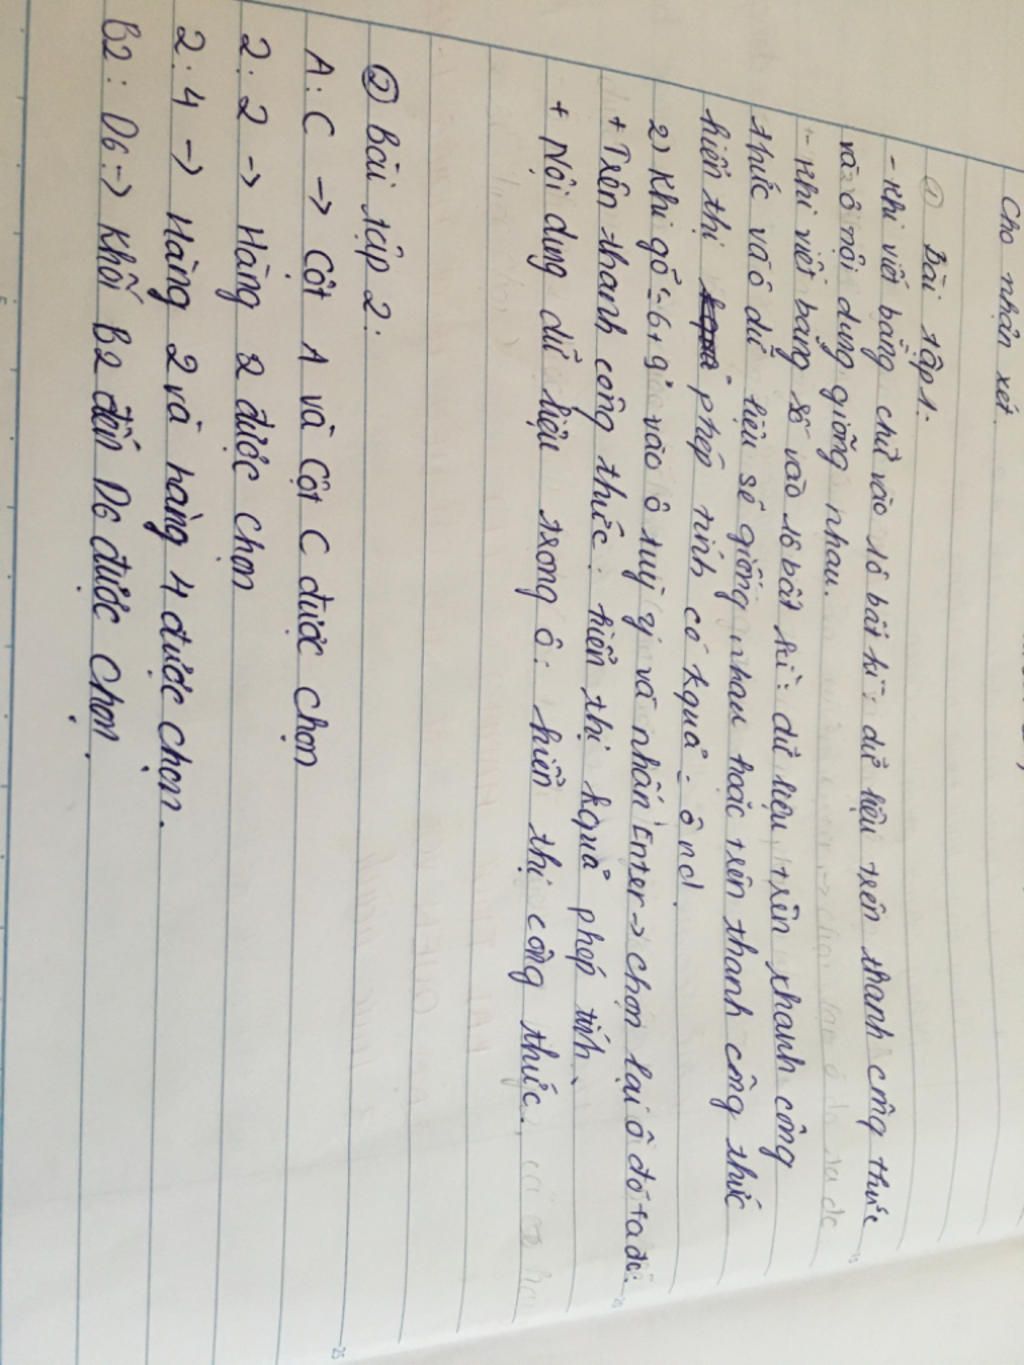 Cho nhận xét.
① Bài tập 1:
- Khi viết bằng chữ vào 1 ô bất kì: dữ liệu trên thanh công thức
và ô nội dung giống nhau.
- Khi viết bằng số vào 1 ô bất kì: dữ liệu trên thanh công
thức và ô dữ liệu sẽ giống nhau hoặc trên thanh công thức
hiển thị phép tính có kquả = ô nd.
2) Khi gõ =6+9 vào ô tuỳ ý và nhấn Enter → chọn lại ô đó ta đc:
+ Trên thanh công thức: hiển thị kquả phép tính.
+ Nội dung dữ liệu trong ô: hiển thị công thức.
② Bài tập 2:
A: C → Cột A và Cột C được chọn
2: 2 → Hàng 2 được chọn
2: 4 → Hàng 2 và hàng 4 được chọn.
B2: D6: → Khối B2 đến D6 được chọn.
25